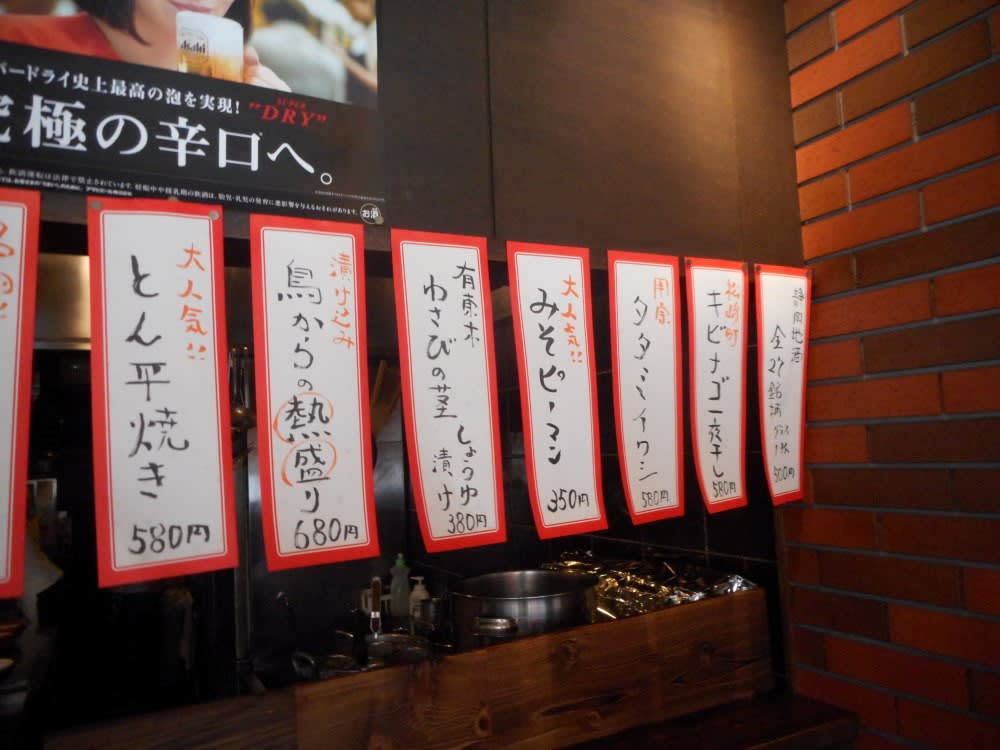 Asahi
パードライ史上最高の泡を実現!
SUPER
"DRY"
極の辛口へ。
お酒
大人気!!
とん平焼き
580円
漬け込み
鳥からの熱盛り
680円
有東木
わさびの茎
しょうゆ漬け
380円
大人気!!
みそピーマン
350円
用宗
タタミイワシ
580円
キビナゴ一夜干し
580円
静岡地酒
全27銘柄
グラス1杯
500円